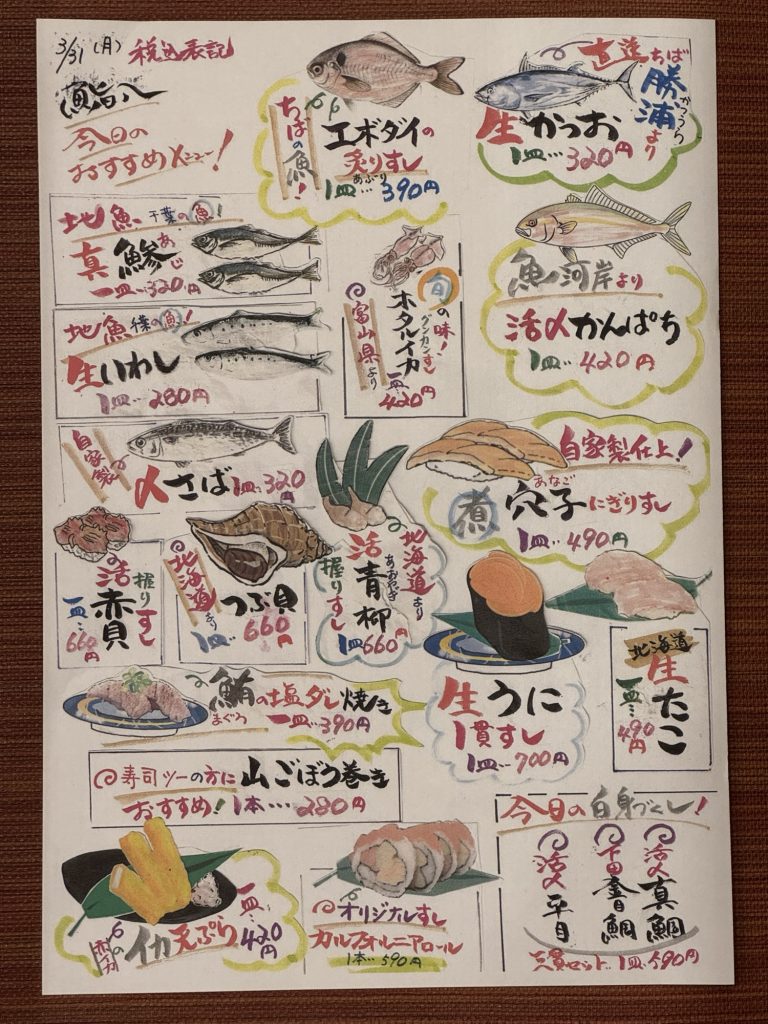 3/31(月) 税込表記
魚旨八
今日の
おすすめメニュー!
ちばの魚!
エボダイの
炙りすし
あぶり
1皿…390円
直送ちば
勝浦より
かつうら
生かつお
1皿…320円
地魚 千葉の魚!
真鯵
あじ
一皿…320円
地魚 千葉の魚!
生いわし
1皿…280円
旬の味!
グンカンすし
ホタルイカ
富山県より
一皿…420円
魚河岸より
活〆かんぱち
1皿…420円
自家製
〆さば 1皿…320円
自家製仕上!
あなご
煮穴子にぎりすし
1皿…490円
活赤貝
握りすし
一皿…660円
北海道より
つぶ貝
1皿…660円
北海道より
活青柳
あおやぎ
握りすし
1皿660円
生うに
1貫すし
1皿…700円
北海道
生たこ
一皿…490円
鮪の塩ダレ焼き
まぐろ
一皿…390円
寿司ツーの方に
おすすめ!
山ごぼう巻き
1本…280円
今日の白身づくし!
活〆真鯛
下田金目鯛
活〆平目
三貫セット…1皿…590円
イカ天ぷら
一皿…420円
オリジナルすし
カルフォルニアロール
1本…590円